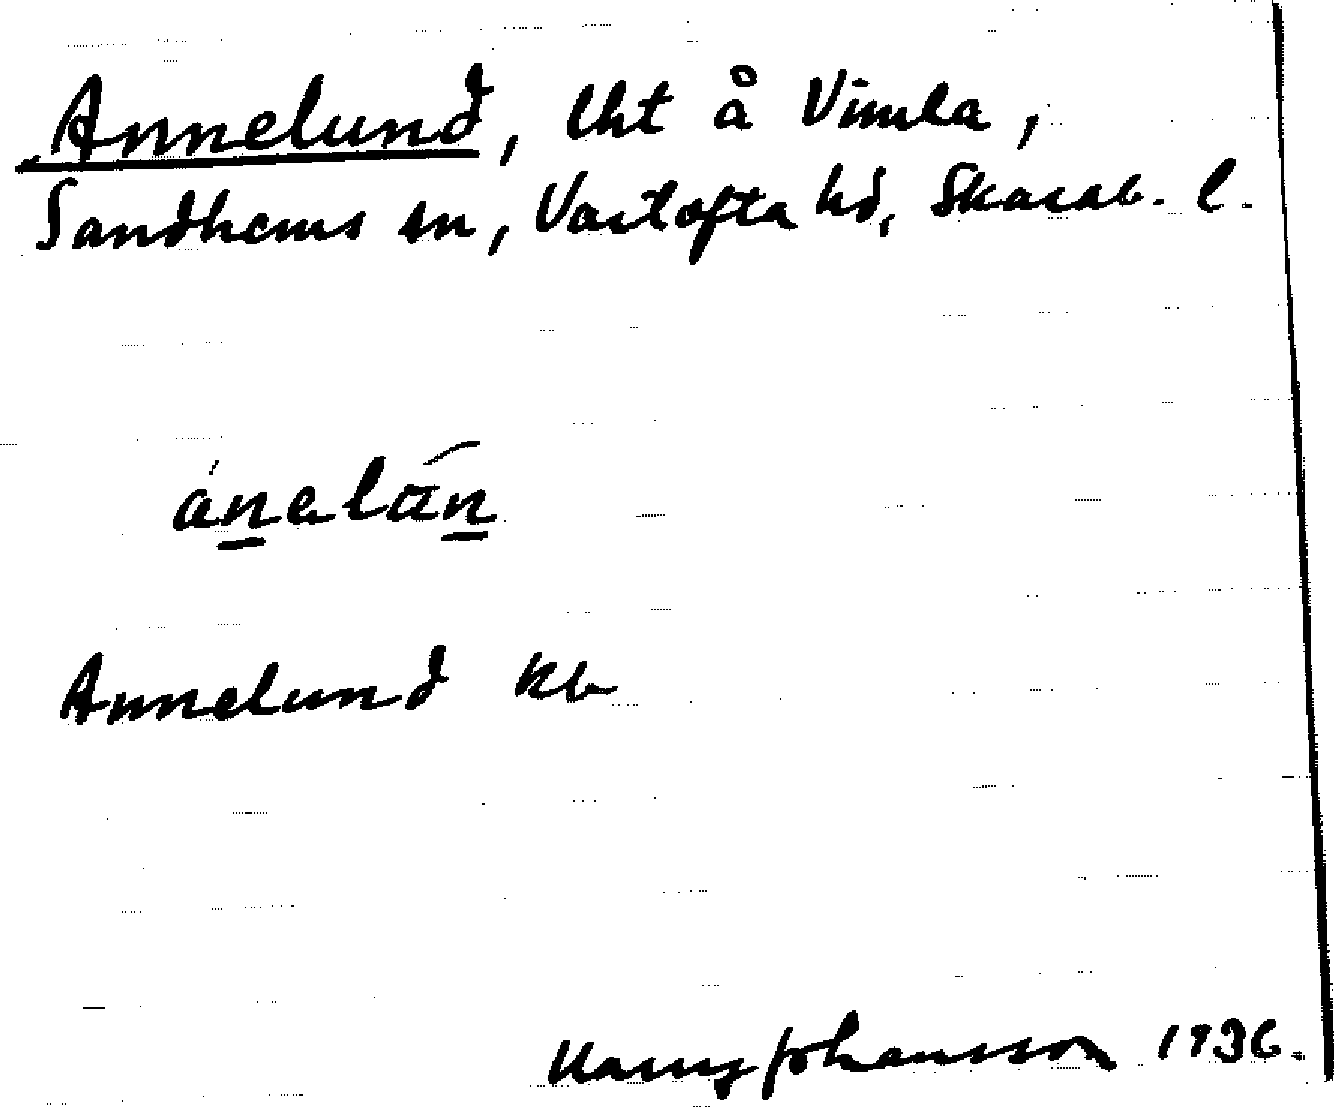 Annelund, lht å Vimla,
Sandhems sn, Vartofta hd, Skarab. l.
ánalūn
Annelund kb
Harry Johansson 1936.